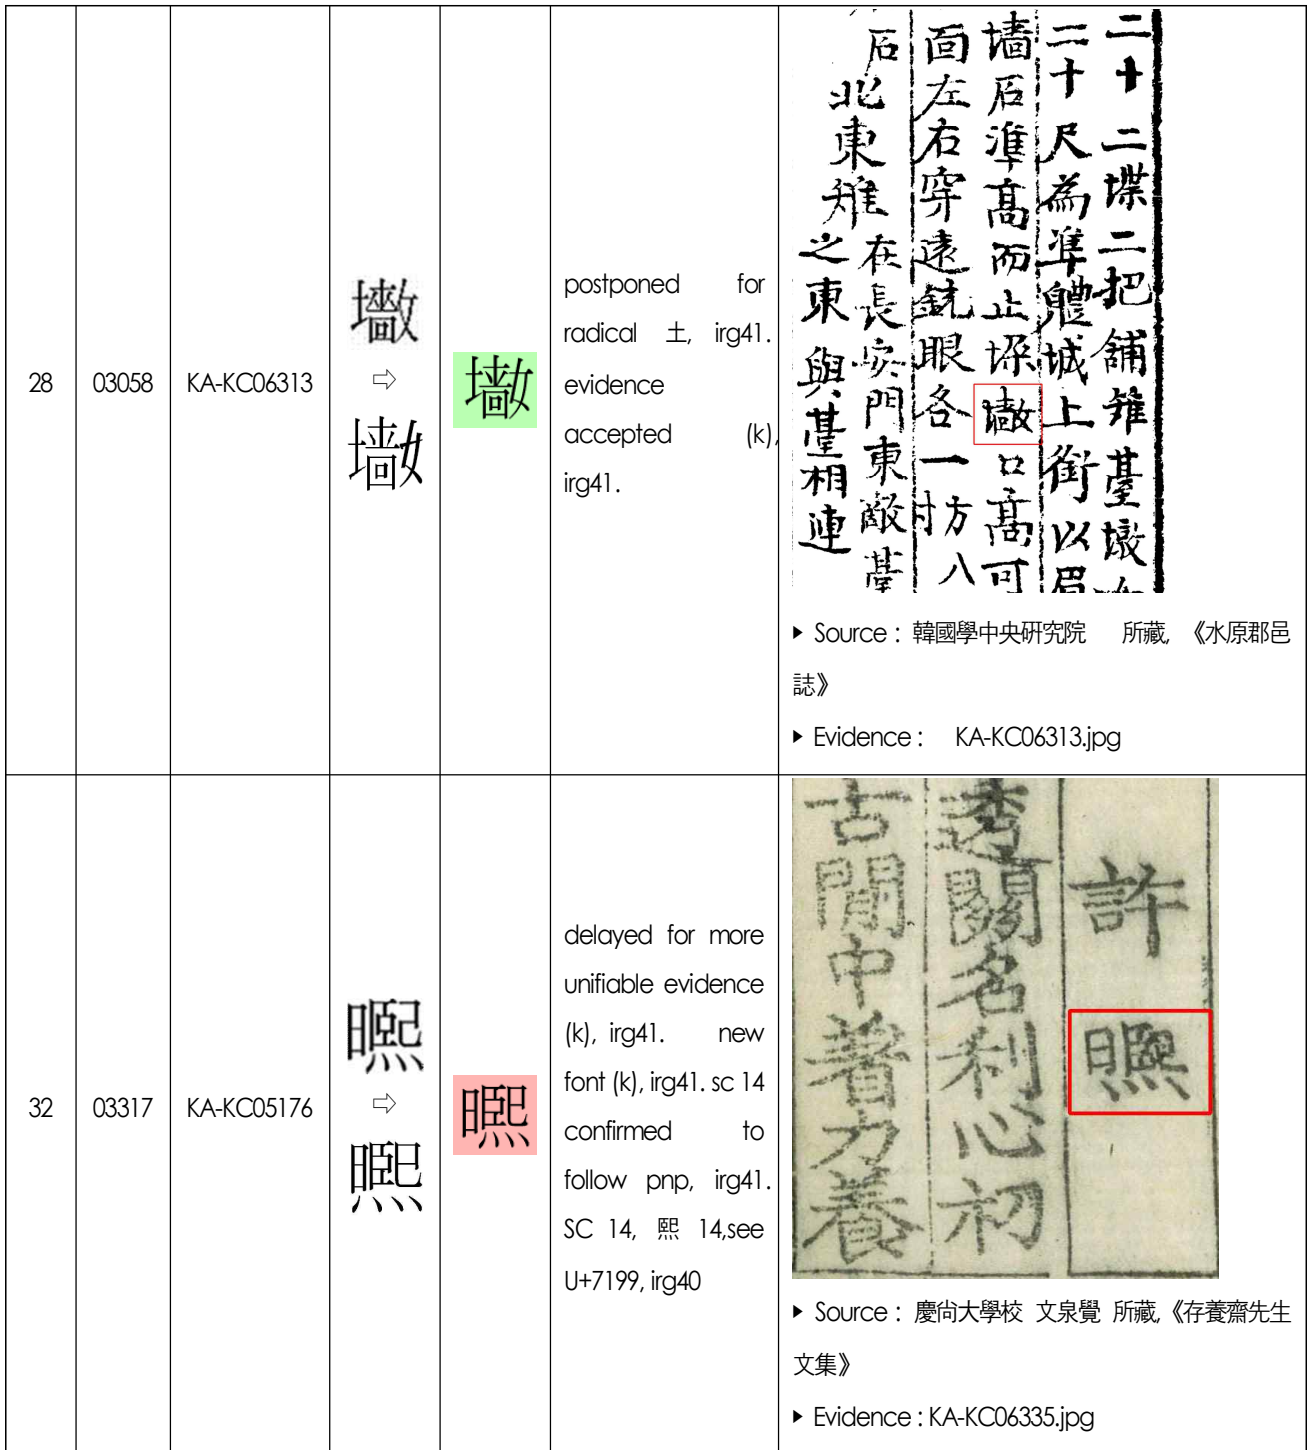 28
03058
KA-KC06313
⇨
postponed for
radical 土, irg41.
evidence
accepted (k),
irg41.
二十二堞二把舖雉臺墩
二十尺為準軆城上銜以眉
墙石準高而止垛口高可
面左右穿遠銃眼各一方八寸
石
北東雉
在長安門東敵臺
之東與臺相連
▶ Source : 韓國學中央硏究院 所藏, 《水原郡邑
誌》
▶ Evidence : KA-KC06313.jpg
32
03317
KA-KC05176
⇨
delayed for more
unifiable evidence
(k), irg41. new
font (k), irg41. sc 14
confirmed to
follow pnp, irg41.
SC 14, 熙 14,see
U+7199, irg40
許
透關名利心初
古閒中著力養
▶ Source : 慶尙大學校 文泉覺 所藏, 《存養齋先生
文集》
▶ Evidence : KA-KC06335.jpg